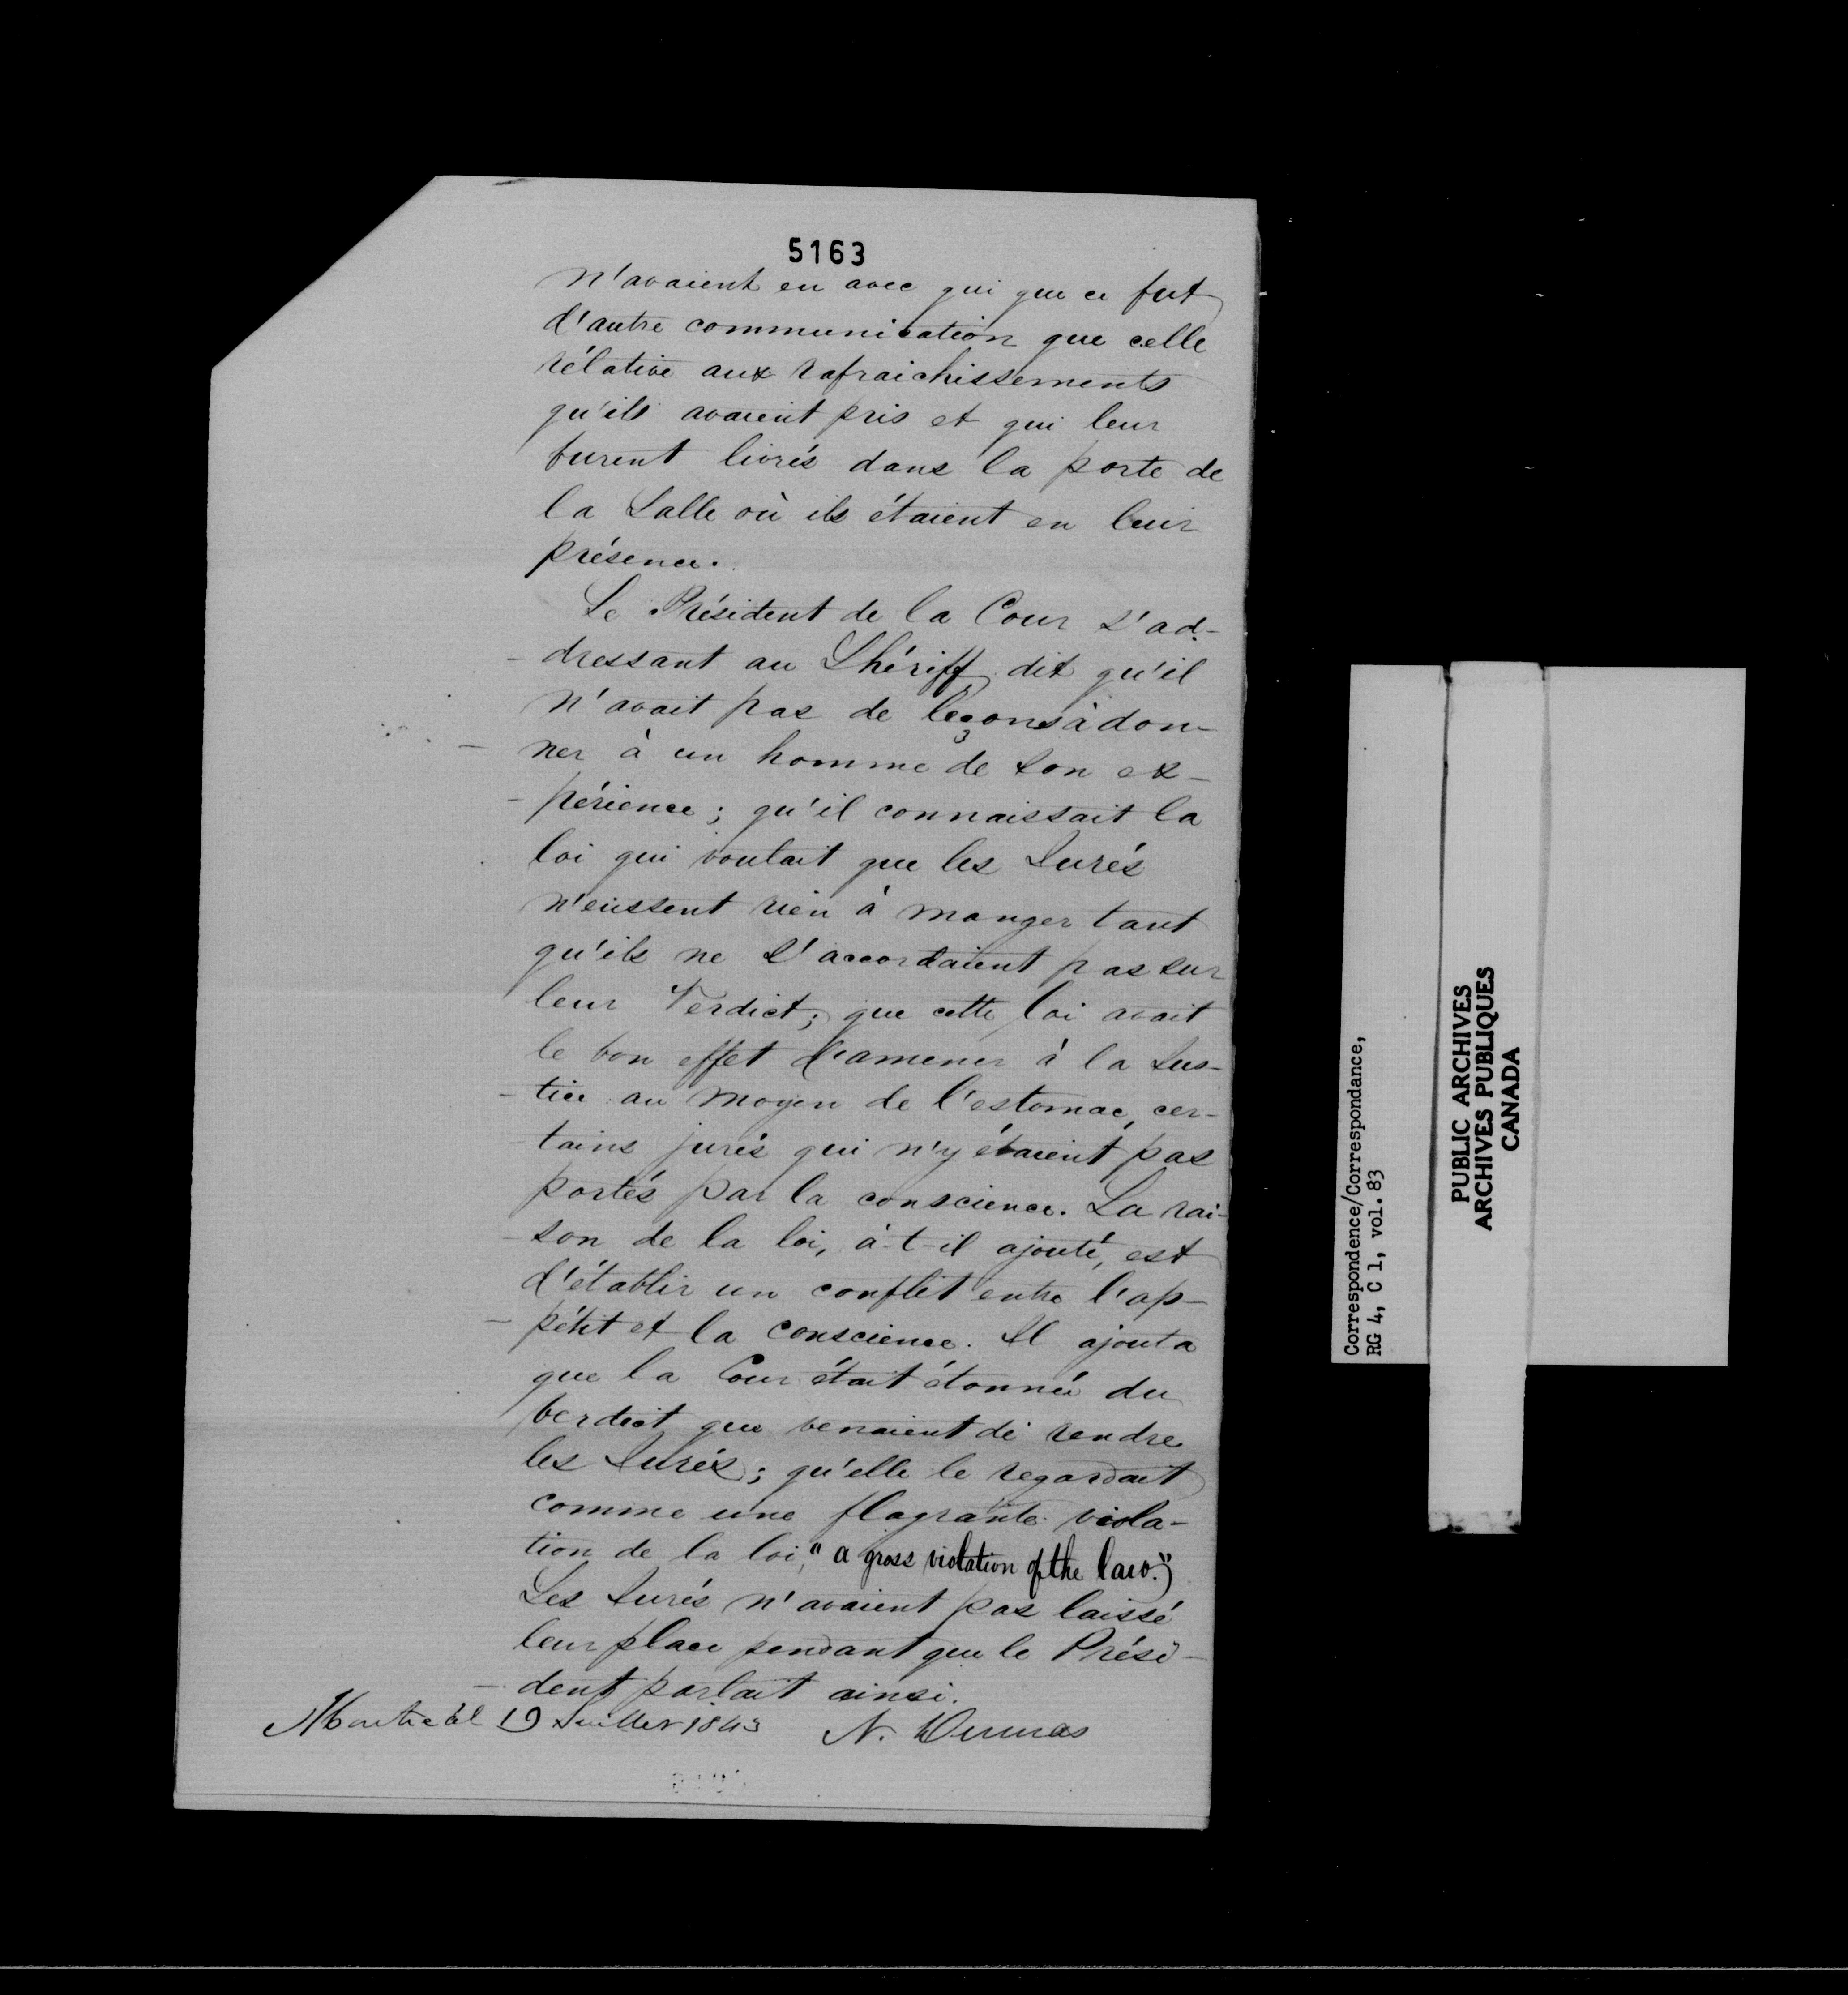 5163
n'avaient eu avec qui que ce fut
d'autre communication que celle
rélative aux rafraichissements
qu'ils avaient pris et qui leur
furent livrés dans la porte de
la Salle où ils étaient en leur
présence.
Le Président de la Cour s'ad-
-dressant au Shériff, dit qu'il
n'avait pas de leçons à don-
-ner à un homme de son ex-
-périence; qu'il connaissait la
loi qui voulait que les Jurés
n'eussent rien à manger tant
qu'ils ne s'accordaient pas sur
leur Verdict; que cette loi avait
le bon effet d'amener à la Jus-
-tice au moyen de l'estomac, cer-
-tains jurés qui n'y étaient pas
portés par la conscience. La rai-
-son de la loi, à-t-il ajouté, est
d'établir un conflit entre l'ap-
-pétit et la conscience. Il ajouta
que la Cour était étonnée du
verdict que venaient de rendre
les Jurés; qu'elle le regardait
comme une flagrante viola-
tion de la loi, "a gross violation of the law.")
Les Jurés n'avaient pas laissé
leur place pendant que le Prési-
-dent parlait ainsi.
Montréal 19 Juillet 1843 N. Dumas
Correspondence/Correspondance,
RG 4, C 1, vol. 83
PUBLIC ARCHIVES
ARCHIVES PUBLIQUES
CANADA